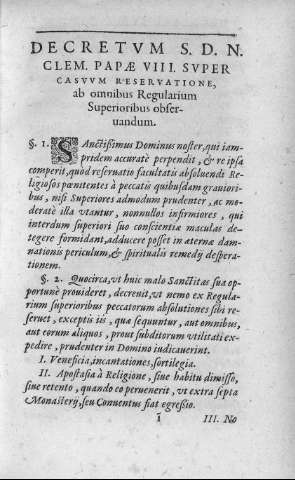 DECRETVM S. D. N.
CLEM. PAPÆ VIII. SVPER
CASVVM RESERVATIONE,
ab omnibus Regularium
Superioribus obser-
uandum.
§. 1. SAnctißimus Dominus noster, qui iam-
pridem accuratè perpendit, & re ipsa
comperit, quod reseruatio facultatis absoluendi Re-
ligiosos pœnitentes à peccatis quibusdam grauiori-
bus, nisi Superiores admodum prudenter, ac mo-
deratè illa vtantur, nonnullos infirmiores, qui
interdum superiori suo conscientiæ maculas de-
tegere formidant, adducere posset in æternæ dam-
nationis periculum, & spiritualis remedij despera-
tionem.
§. 2. Quocirca, vt huic malo Sanctitas sua op-
portunè prouideret, decreuit, vt nemo ex Regula-
rium superioribus peccatorum absolutiones sibi re-
seruet, exceptis iis, quæ sequuntur, aut omnibus,
aut eorum aliquos, prout subditorum vtilitati ex-
pedire, prudenter in Domino iudicauerint.
I. Veneficia, incantationes, sortilegia.
II. Apostasia à Religione, siue habitu dimisso,
siue retento, quando eo peruenerit, vt extra septa
Monasterij, seu Conuentus fiat egreßio.
i III. No